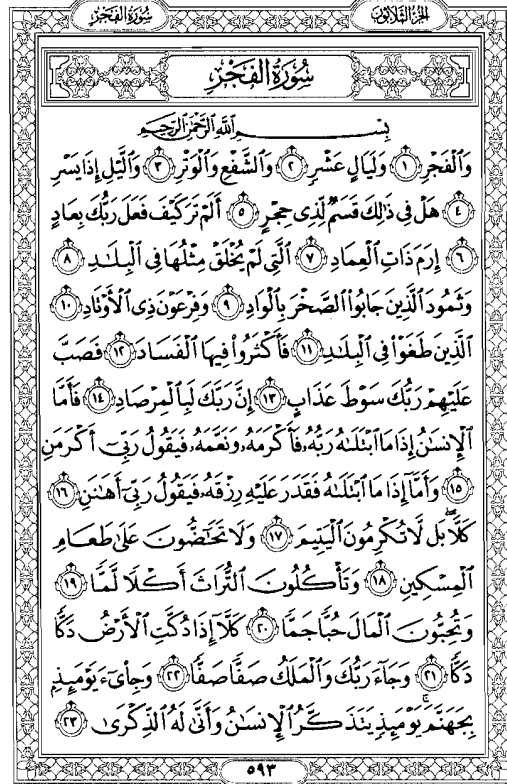 سُورَةُ الفَجْرِ الجُزْءُ الثَّلَاثُونَ
سُورَةُ الفَجْرِ
بِسْمِ ٱللَّهِ ٱلرَّحْمَٰنِ ٱلرَّحِيمِ
وَٱلْفَجْرِ ١ وَلَيَالٍ عَشْرٍ ٢ وَٱلشَّفْعِ وَٱلْوَتْرِ ٣ وَٱلَّيْلِ إِذَا يَسْرِ
٤ هَلْ فِى ذَٰلِكَ قَسَمٌ لِّذِى حِجْرٍ ٥ أَلَمْ تَرَ كَيْفَ فَعَلَ رَبُّكَ بِعَادٍ
٦ إِرَمَ ذَاتِ ٱلْعِمَادِ ٧ ٱلَّتِى لَمْ يُخْلَقْ مِثْلُهَا فِى ٱلْبِلَٰدِ ٨
وَثَمُودَ ٱلَّذِينَ جَابُوا۟ ٱلصَّخْرَ بِٱلْوَادِ ٩ وَفِرْعَوْنَ ذِى ٱلْأَوْتَادِ ١٠
ٱلَّذِينَ طَغَوْا۟ فِى ٱلْبِلَٰدِ ١١ فَأَكْثَرُوا۟ فِيهَا ٱلْفَسَادَ ١٢ فَصَبَّ
عَلَيْهِمْ رَبُّكَ سَوْطَ عَذَابٍ ١٣ إِنَّ رَبَّكَ لَبِٱلْمِرْصَادِ ١٤ فَأَمَّا
ٱلْإِنسَٰنُ إِذَا مَا ٱبْتَلَىٰهُ رَبُّهُۥ فَأَكْرَمَهُۥ وَنَعَّمَهُۥ فَيَقُولُ رَبِّىٓ أَكْرَمَنِ
١٥ وَأَمَّآ إِذَا مَا ٱبْتَلَىٰهُ فَقَدَرَ عَلَيْهِ رِزْقَهُۥ فَيَقُولُ رَبِّىٓ أَهَٰنَنِ ١٦
كَلَّا ۖ بَل لَّا تُكْرِمُونَ ٱلْيَتِيمَ ١٧ وَلَا تَحَٰٓضُّونَ عَلَىٰ طَعَامِ
ٱلْمِسْكِينِ ١٨ وَتَأْكُلُونَ ٱلتُّرَاثَ أَكْلًا لَّمًّا ١٩
وَتُحِبُّونَ ٱلْمَالَ حُبًّا جَمًّا ٢٠ كَلَّآ إِذَا دُكَّتِ ٱلْأَرْضُ دَكًّا
دَكًّا ٢١ وَجَآءَ رَبُّكَ وَٱلْمَلَكُ صَفًّا صَفًّا ٢٢ وَجِا۟ىٓءَ يَوْمَئِذٍۭ
بِجَهَنَّمَ ۚ يَوْمَئِذٍ يَتَذَكَّرُ ٱلْإِنسَٰنُ وَأَنَّىٰ لَهُ ٱلذِّكْرَىٰ ٢٣
٥٩٣